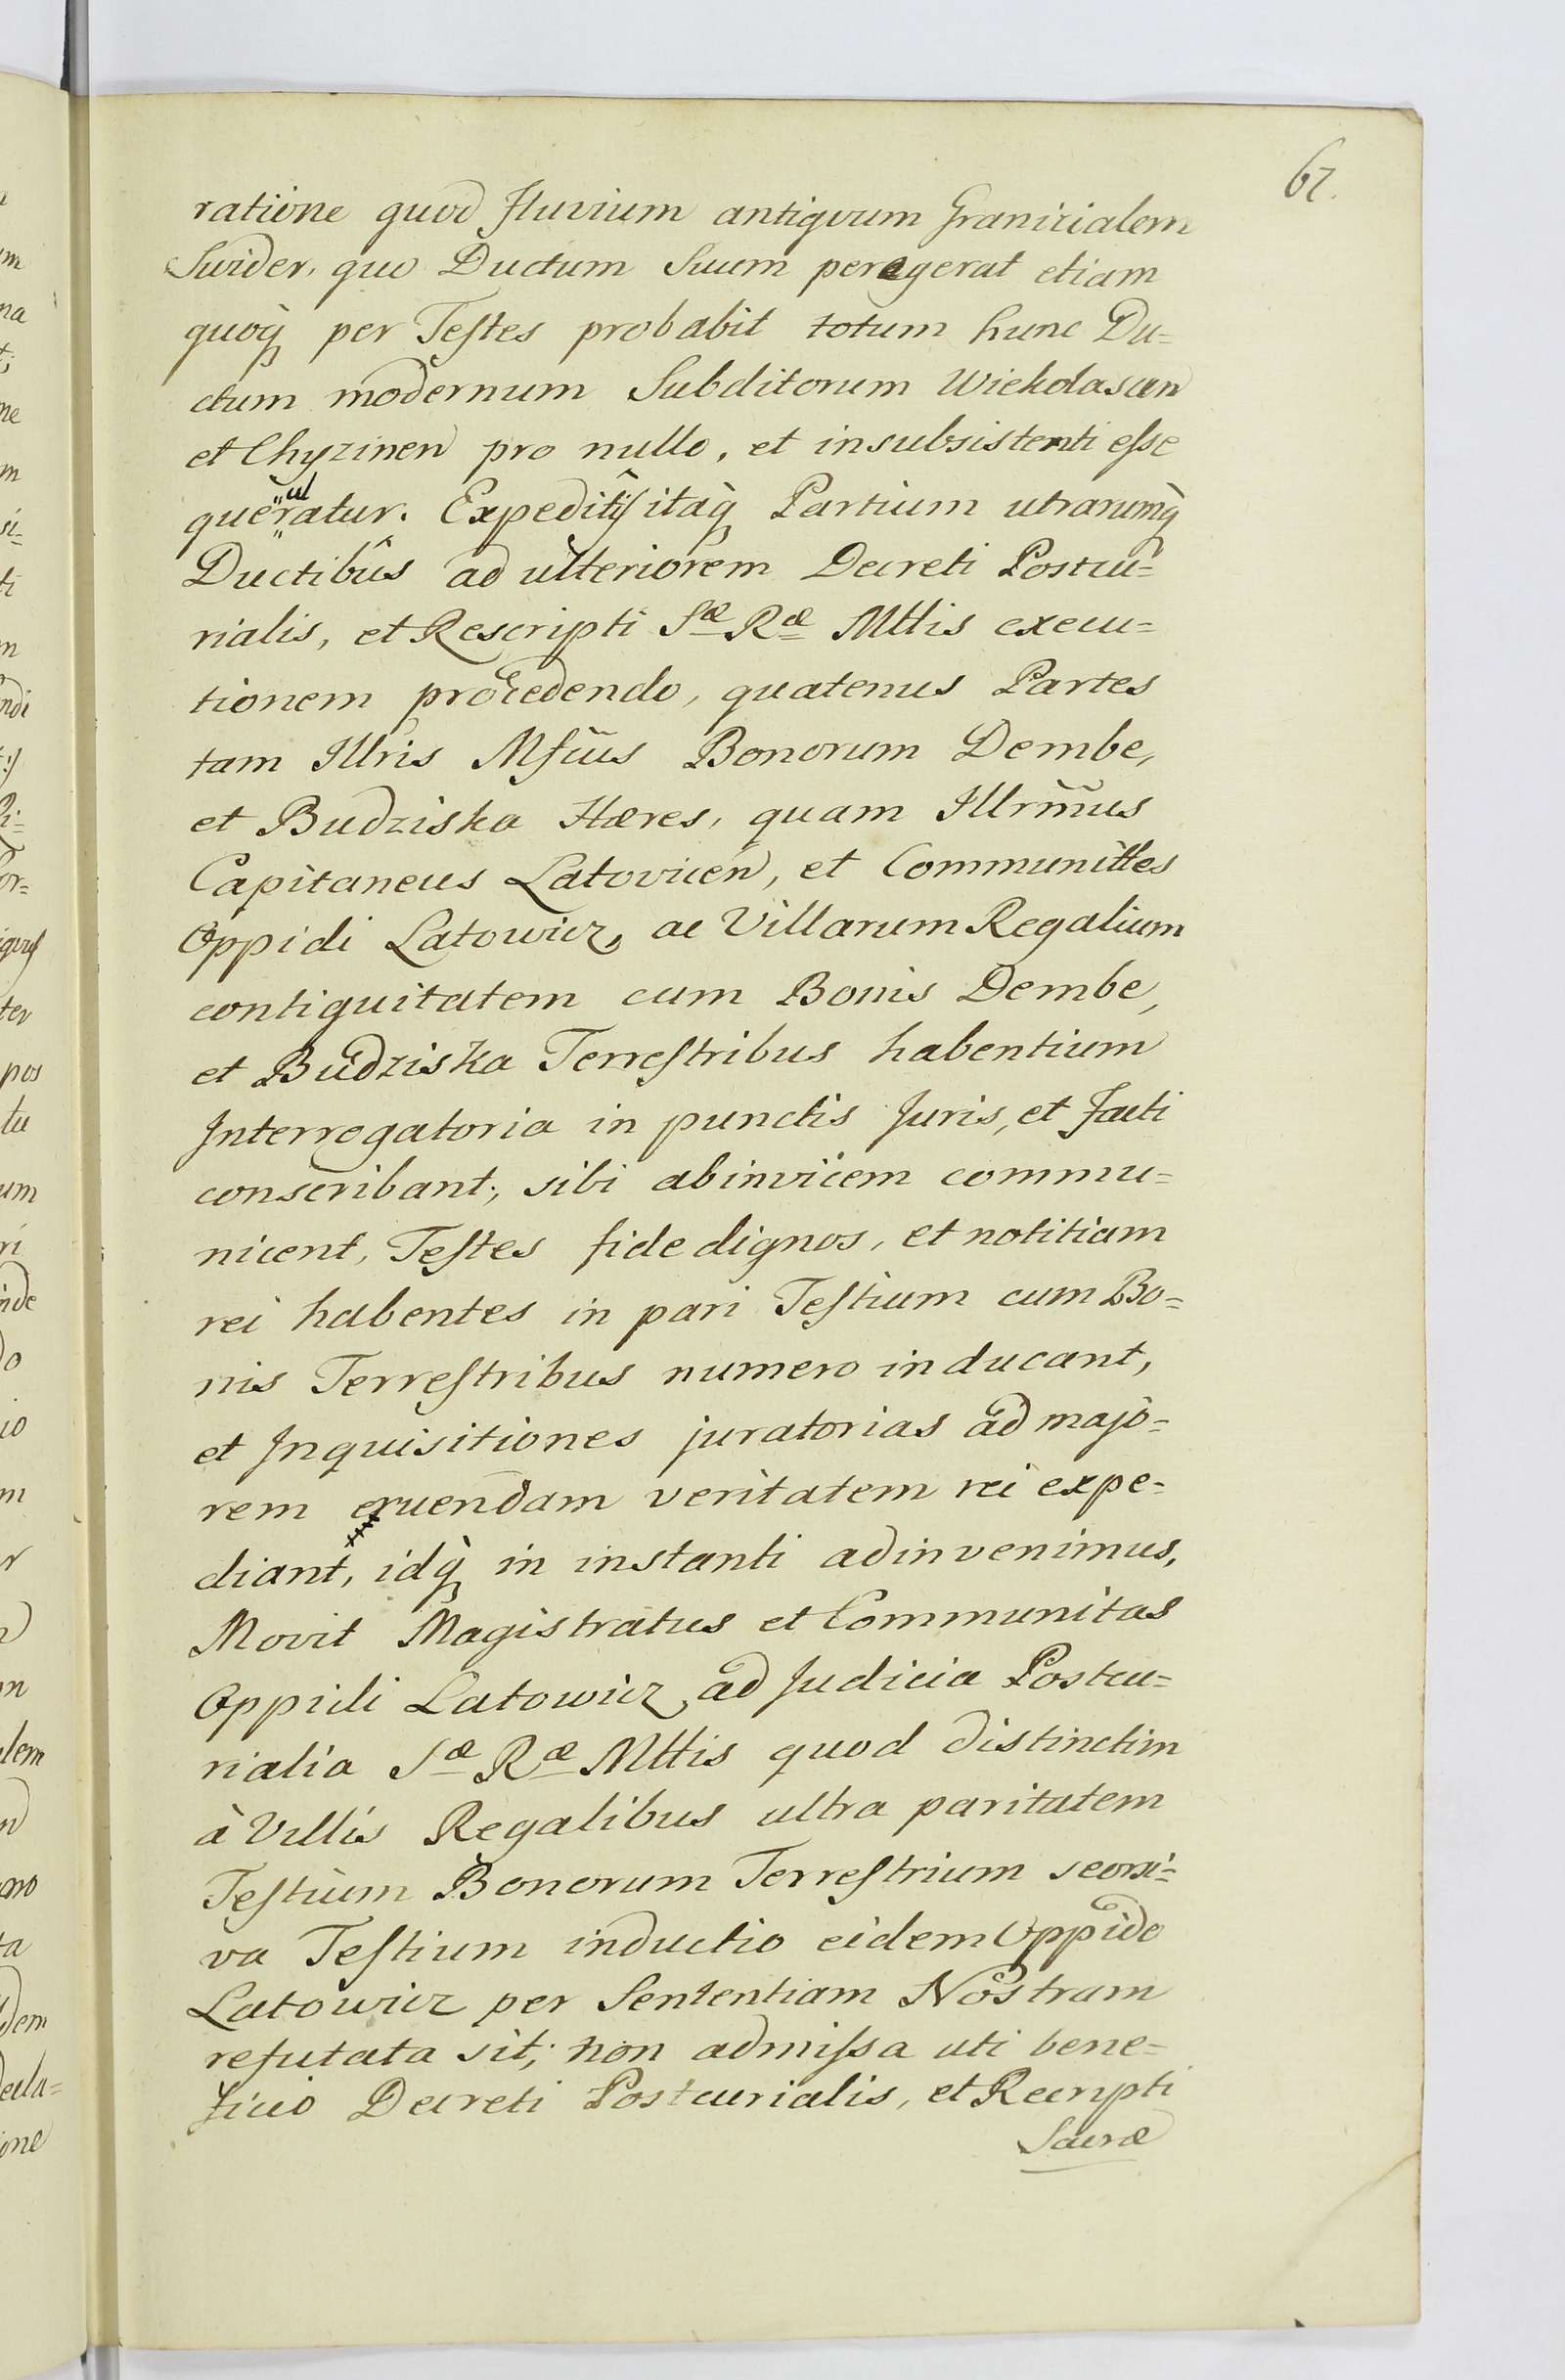 67.
ratione quod Fluvium antiqvum Granicialem
Swider, quo Ductum Suum peregerat etiam
quoq̀ per Teſtes probabit totum hunc Du=
ctum modernum Subditorum Wielolascen
et Chyzinen pro nullo, et insubsistenti eſse
queratur. Expeditis itaq̀ Partium utrarumq̀
ul
Ductibûs ad ulteriorem Decreti Postcu=
rialis, et Rescripti Sæ Ræ Mttis execu=
tionem procedendo, quatenus Partes
tam Illris Mſicus Bonorum Dembe,
et Budziska Hæres, quam Illrm̃us
Capitaneus Latovicen, et Communittes
Oppidi Latowicz, ac Villarum Regalium
contiguitatem cum Bonis Dembe,
et Budziska Terreſtribus habentium
Interrogatoria in punctis Juris, et Facti
conscribant, sibi abinvicem commu=
nicent, Teſtes fide dignos, et notitiam
rei habentes in pari Teſtium cum Bo=
nis Terreſtribus numero inducant,
et Inquisitiones juratorias ad majo=
rem eruendam veritatem rei expe=
diant, idq̀ in instanti adinvenimus,
Movit Magistratus et Communitas
Oppidi Latowicz, ad Judicia Postcu=
rialia Sæ Ræ Mttis quod distinctim
à Villis Regalibus ultra paritatem
Teſtium Bonorum Terreſtrium seorsi=
va Teſtium inductio eidem Oppido
Latowicz per Sententiam Nostram
refutata sit; non admiſsa uti bene=
ficio Decreti Postcurialis, et Recripti
Sacræ